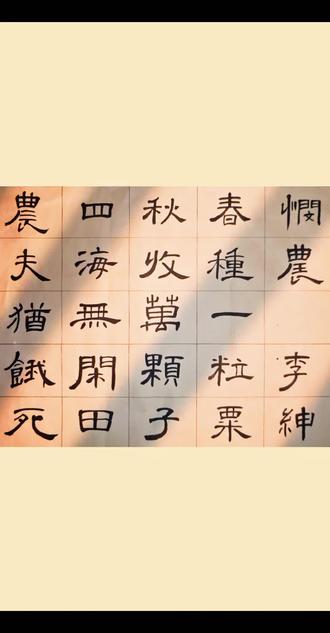 憫農 李紳
春種一粒粟
秋收萬顆子
四海無閑田
農夫猶餓死